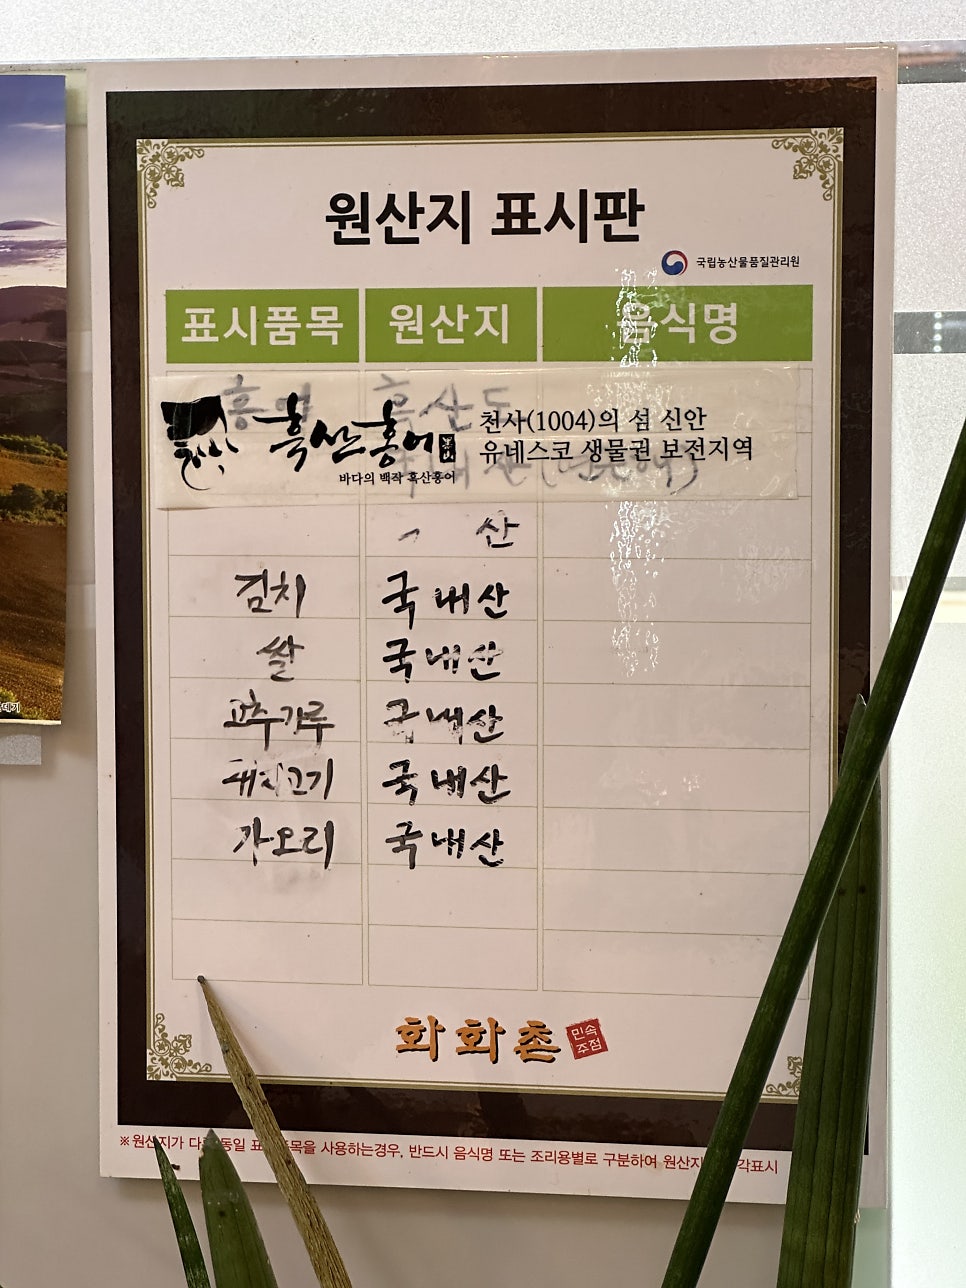 원산지 표시판
국립농산물품질관리원
표시품목 원산지 음식명
흑산홍어 천사(1004)의 섬 신안
유네스코 생물권 보전지역
바다의 백작 흑산홍어
산
김치 국내산
쌀 국내산
고추가루 국내산
돼지고기 국내산
가오리 국내산
화화촌 민속
주점
※원산지가 다른 동일 표시품목을 사용하는경우, 반드시 음식명 또는 조리용별로 구분하여 원산지 각표시